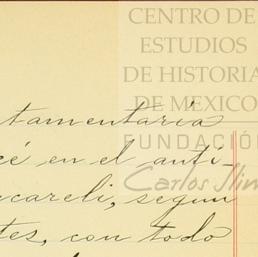 CENTRO DE
ESTUDIOS
DE HISTORIA
DE MEXICO
FUNDACIÓN
Carlos Slim
tamentaría
cé en el anti-
careli, segun
tes, con todo